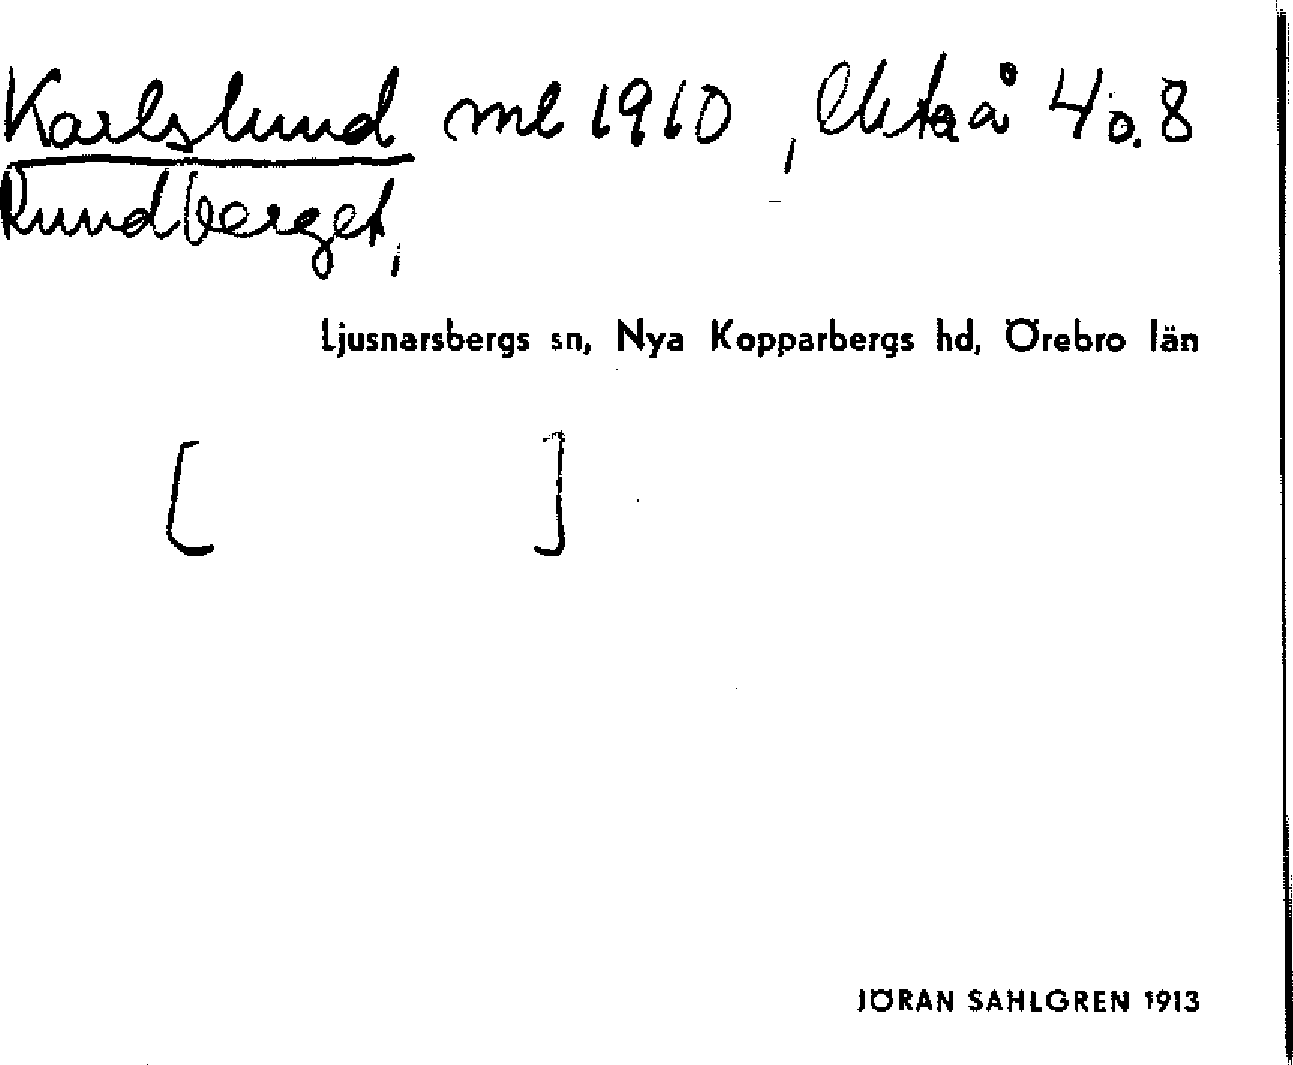 Karlslund ml 1910, 4 o. 8
Rundberget,
Ljusnarsbergs sn, Nya Kopparbergs hd, Örebro län
[ ]
JÖRAN SAHLGREN 1913